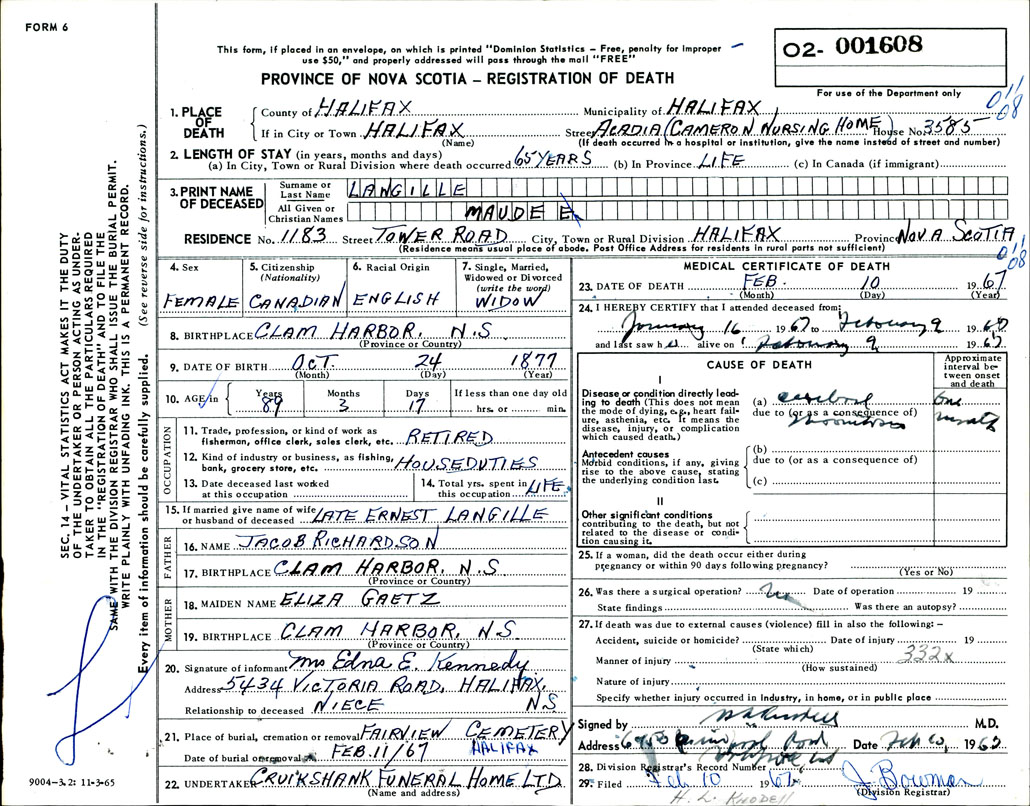 FORM 6
This form, if placed in an envelope, on which is printed "Dominion Statistics – Free, penalty for improper
use $50," and properly addressed will pass through the mail "FREE"
PROVINCE OF NOVA SCOTIA – REGISTRATION OF DEATH
02- 001608
For use of the Department only
011
08
1. PLACE OF DEATH
County of HALIFAX Municipality of HALIFAX
If in City or Town HALIFAX Street ACADIA (CAMERON NURSING HOME) House No. 3585
(Name) (If death occurred in a hospital or institution, give the name instead of street and number)
2. LENGTH OF STAY (in years, months and days)
(a) In City, Town or Rural Division where death occurred 65 YEARS (b) In Province LIFE (c) In Canada (if immigrant)
3. PRINT NAME OF DECEASED
Surname or Last Name LANGILLE
All Given or Christian Names MAUDE E
RESIDENCE No. 1183 Street TOWER ROAD City, Town or Rural Division HALIFAX Province NOVA SCOTIA
(Residence means usual place of abode. Post Office Address for residents in rural parts not sufficient)
011
08
4. Sex FEMALE
5. Citizenship (Nationality) CANADIAN
6. Racial Origin ENGLISH
7. Single, Married, Widowed or Divorced (write the word) WIDOW
8. BIRTHPLACE CLAM HARBOR, N.S.
(Province or Country)
9. DATE OF BIRTH OCT. 24 1877
(Month) (Day) (Year)
10. AGE in Years 89 Months 3 Days 17 If less than one day old hrs. or min.
OCCUPATION
11. Trade, profession, or kind of work as fisherman, office clerk, sales clerk, etc. RETIRED
12. Kind of industry or business, as fishing, bank, grocery store, etc. HOUSEDUTIES
13. Date deceased last worked at this occupation
14. Total yrs. spent in this occupation LIFE
15. If married give name of wife or husband of deceased LATE ERNEST LANGILLE
FATHER
16. NAME JACOB RICHARDSON
17. BIRTHPLACE CLAM HARBOR, N.S.
(Province or Country)
MOTHER
18. MAIDEN NAME ELIZA GAETZ
19. BIRTHPLACE CLAM HARBOR, N.S.
(Province or Country)
20. Signature of informant Mrs Edna E. Kennedy
Address 5434 VICTORIA ROAD, HALIFAX,
Relationship to deceased NIECE N.S
21. Place of burial, cremation or removal FAIRVIEW CEMETERY
Date of burial or removal FEB. 11/67 HALIFAX
22. UNDERTAKER CRUIKSHANK FUNERAL HOME LTD
(Name and address)
MEDICAL CERTIFICATE OF DEATH
23. DATE OF DEATH FEB. 10 1967
(Month) (Day) (Year)
24. I HEREBY CERTIFY that I attended deceased from:
January 16 1967 to February 9 1967
and last saw her alive on February 9 1967
CAUSE OF DEATH
Approximate interval between onset and death
I
Disease or condition directly leading to death (This does not mean the mode of dying, e.g., heart failure, asthenia, etc. it means the disease, injury, or complication which caused death.)
(a) cerebral one
due to (or as a consequence of)
thrombosis month
Antecedent causes
Morbid conditions, if any, giving rise to the above cause, stating the underlying condition last.
(b)
due to (or as a consequence of)
(c)
II
Other significant conditions
contributing to the death, but not related to the disease or condition causing it.
25. If a woman, did the death occur either during pregnancy or within 90 days following pregnancy?
(Yes or No)
26. Was there a surgical operation? No Date of operation 19
State findings Was there an autopsy?
27. If death was due to external causes (violence) fill in also the following: –
Accident, suicide or homicide? Date of injury 19
(State which)
332x
Manner of injury
(How sustained)
Nature of injury
Specify whether injury occurred in Industry, in home, or in public place
Signed by M.D.
Address Road Date Feb 10, 1967
28. Division Registrar's Record Number
29. Filed Feb 10 1967 J. Bowman
(Division Registrar)
H. L. KNODELL
SEC. 14 – VITAL STATISTICS ACT MAKES IT THE DUTY
OF THE UNDERTAKER OR PERSON ACTING AS UNDER-
TAKER TO OBTAIN ALL THE PARTICULARS REQUIRED
IN THE "REGISTRATION OF DEATH" AND TO FILE THE
SAME WITH THE DIVISION REGISTRAR WHO SHALL ISSUE THE BURIAL PERMIT.
WRITE PLAINLY WITH UNFADING INK. THIS IS A PERMANENT RECORD.
Every item of information should be carefully supplied. (See reverse side for instructions.)
9004–3.2: 11-3-65